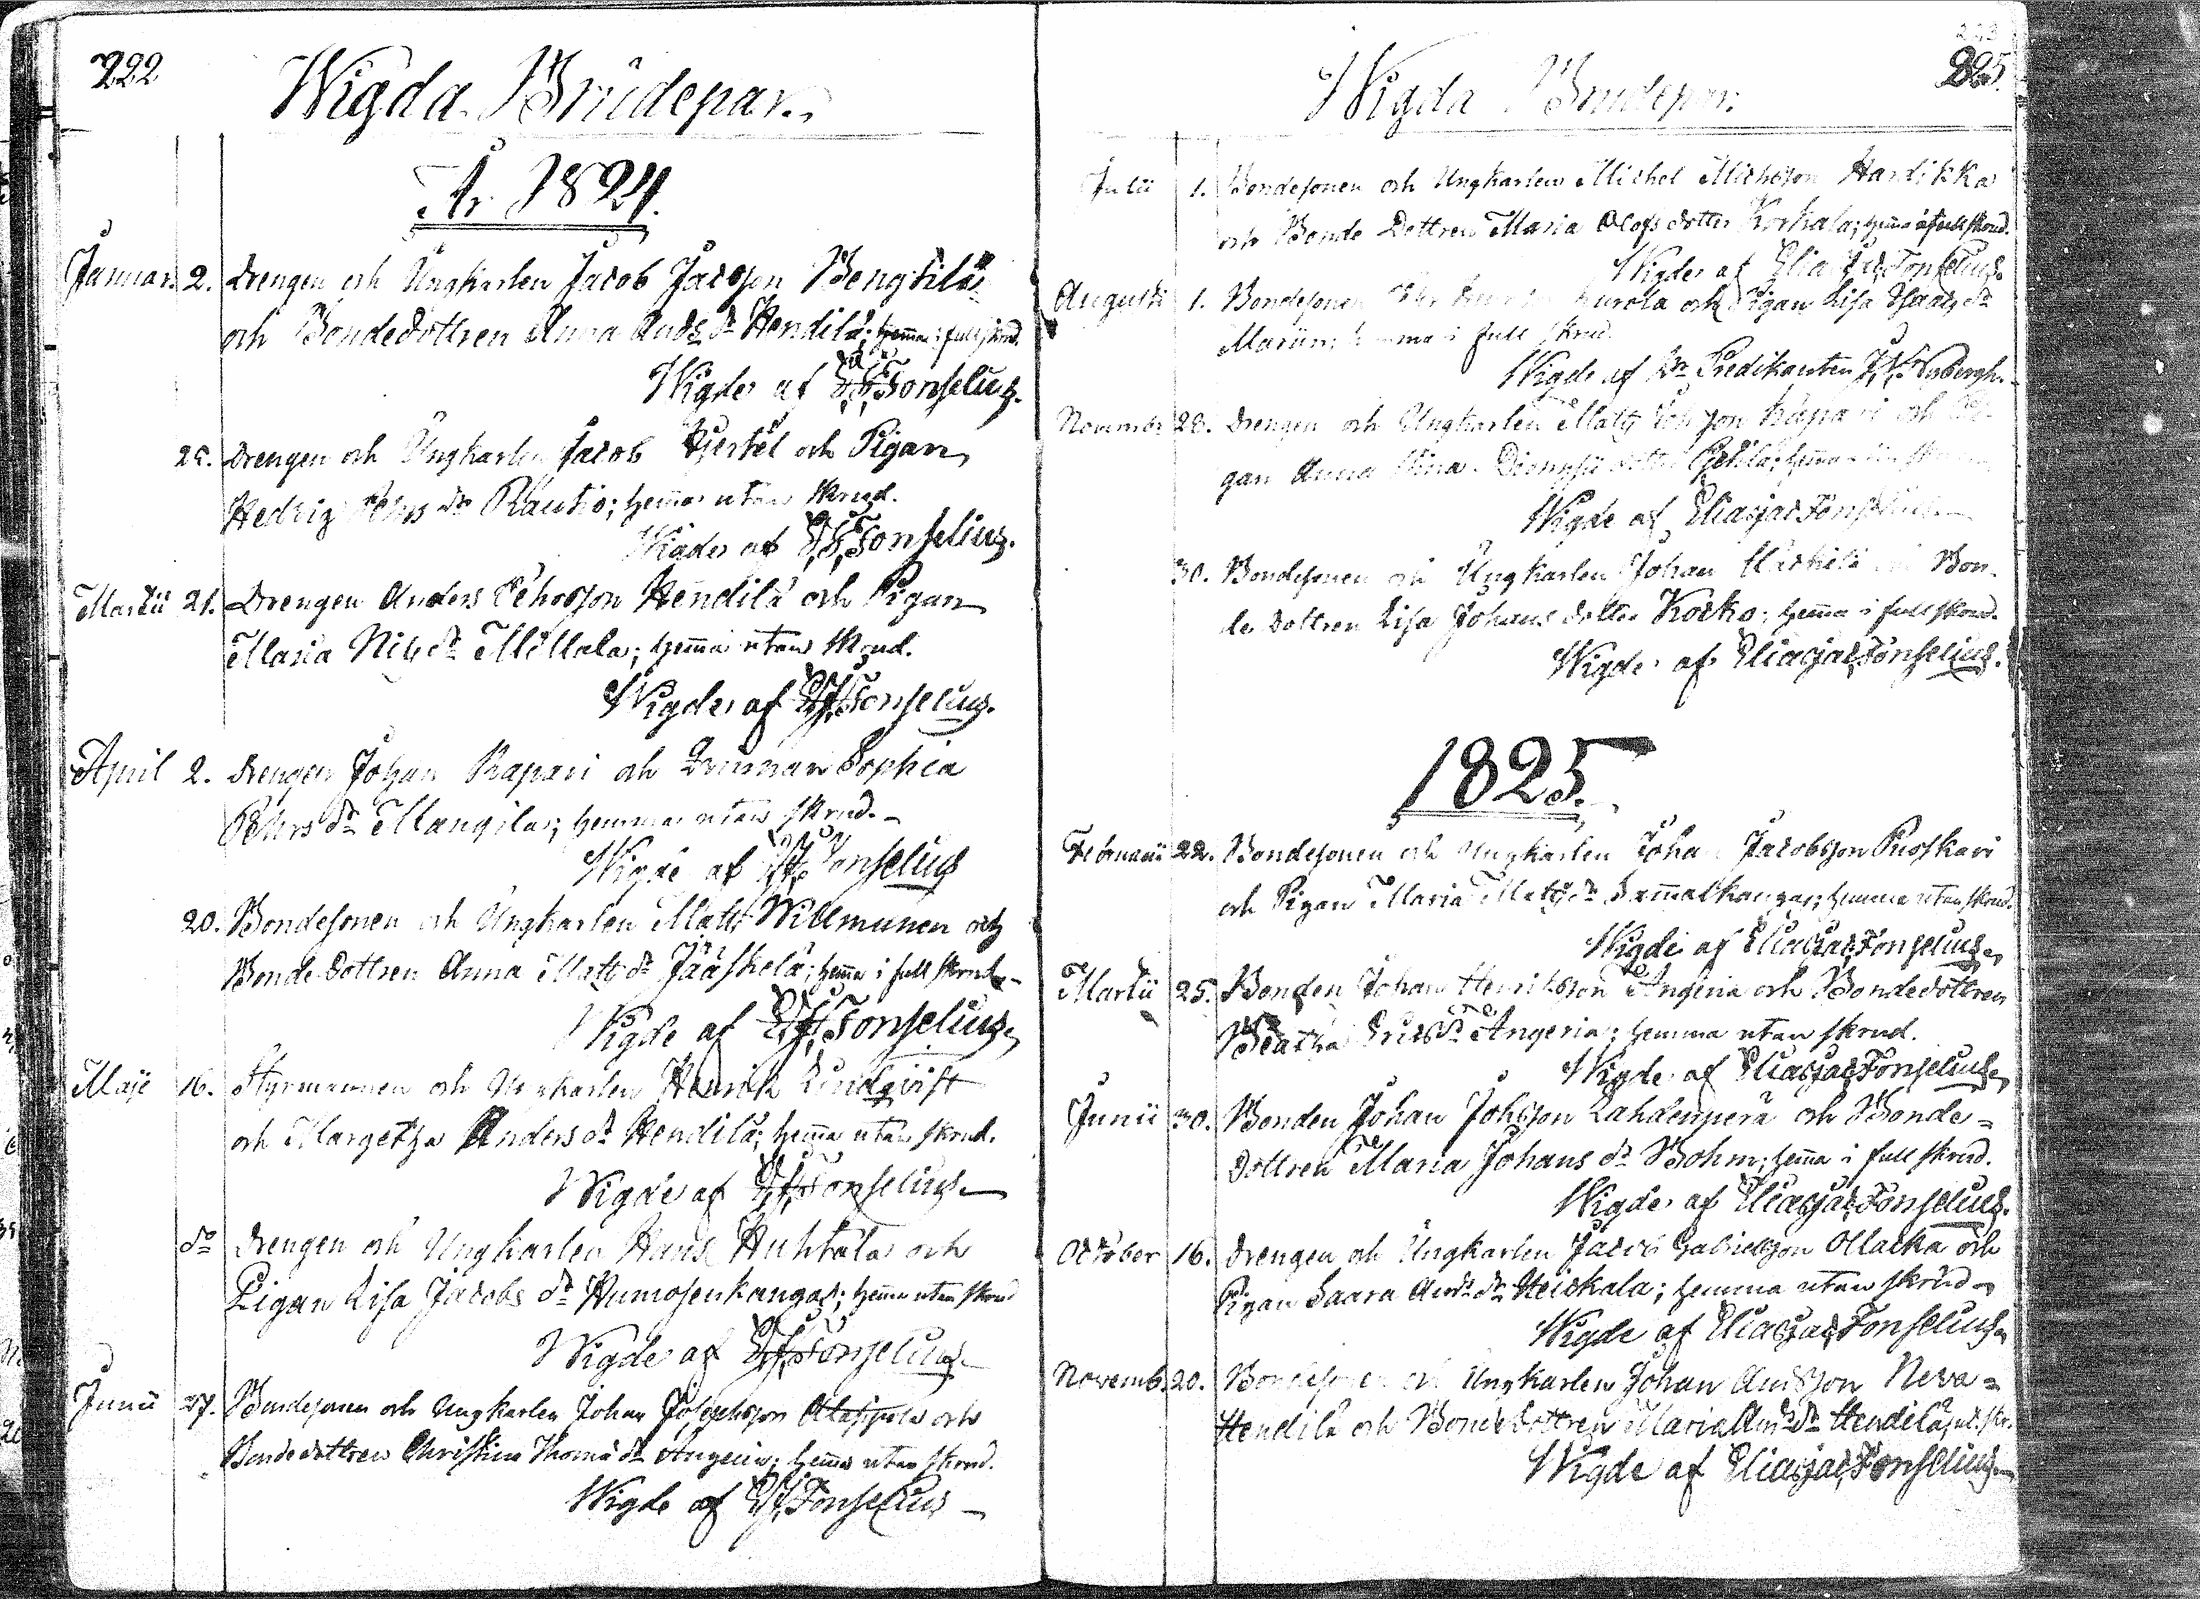 222
Wigda Brudepar.
År 1824.
Januar. 2. Drengen och Ungkarlen Jacob Jacsson Bengtilä
och Bondedottren Anna Ands dr Hendilä; hemma i full skrud.
Wigde af E, J, Fonselius.
25. Drengen och Ungkarlen Jacob Hjertel och Pigan
Hedvig Pehrs dr Rautio; hemma utan skrud.
Wigde af E, J, Fonselius.
Martii 21. Drengen Anders Pehrsson Hendilä och Pigan
Maria Nils dr Mällala; hemma utan skrud.
Wigde af E, J, Fonselius.
April 2. Drengen Johan Rapari och Sophia
Pehrs dr Mangila; hemma utan skrud.
Wigde af E, J, Fonselius
20. Bondesonen och Ungkarlen Matts Willmunen och
Bonde Dottren Anna Matts dr Jääskelä; hemma i full skrud.
Wigde af E, J, Fonselius.
Maji 16. Styrmannen och Ungkarlen Henrik Lindqvist
och Margetha Anders dr Hendilä; hemma utan skrud.
Wigde af E, J, Fonselius.
do Drengen och Ungkarlen Hans Huhtala och
Pigan Lisa Jacobs dr Humosenkangas; hemma utan skrud
Wigde af E, J, Fonselius.
Junii 27. Bondesonen och Ungkarlen Johan Josephsson Alappola och
Bondedottren Christina Thoma dr Angeria; hemma utan skrud.
Wigde af E, J, Fonselius
223
225.
Wigda Brudepar.
Julii 1. Bondesonen och Ungkarlen Michel Michsson Hardikka
och Bonde Dottren Maria Olofs dotter Korkala; hemma i full skrud.
Wigde af Elias Jac Fonselius.
Augusti 1. Bondesonen Kurola och Pigan Lisa Isaacs dr
hemma i full skrud.
Wigde af Hr Predikanten
Novembr 28. Drengen och Ungkarlen Matts Johsson och Pi-
gan Anna Stina Dionysii dotter hemma
Wigde af Elias Jac Fonselius
30. Bondesonen och Ungkarlen Johan och Bon-
de Dottren Lisa Johans dotter Korko; hemma i full skrud.
Wigde af Elias Jac Fonselius.
1825.
Februarii 22. Bondesonen och Ungkarlen Johan Jacobsson Puoskari
och Pigan Maria Matts dr Sammalkangas; hemma utan skrud.
Wigde af Elias Jac Fonselius.
Martii 25. Bonden Johan Henriksson Angeria och Bondedottren
Beatha Erics dr Angeria; hemma utan skrud.
Wigde af Elias Jac Fonselius.
Junii 30. Bonden Johan Johsson Lahdenperä och Bonde=
Dottren Maria Johans dr Bohm; hemma i full skrud.
Wigde af Elias Jac Fonselius.
October 16. Drengen och Ungkarlen Jacob Gabrielsson Ollakka och
Pigan Saara Ands dr Heiskala; hemma utan skrud
Wigde af Elias Jac Fonselius
Novemb. 20. Bondesonen och Ungkarlen Johan Andsson Neva=
Hendilä och Bondedottren Maria Ands dr Hendilä,
Wigde af Elias Jac Fonselius